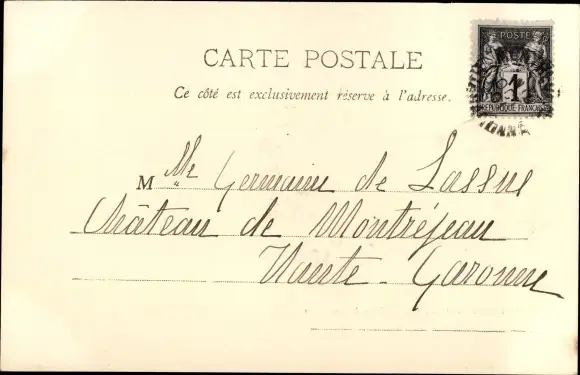 POSTE
CARTE POSTALE
1
Ce côté est exclusivement réservé à l'adresse.
RÉPUBLIQUE FRANÇAISE
M Mlle Germaine de Lassus
Château de Montréjeau
Haute-Garonne